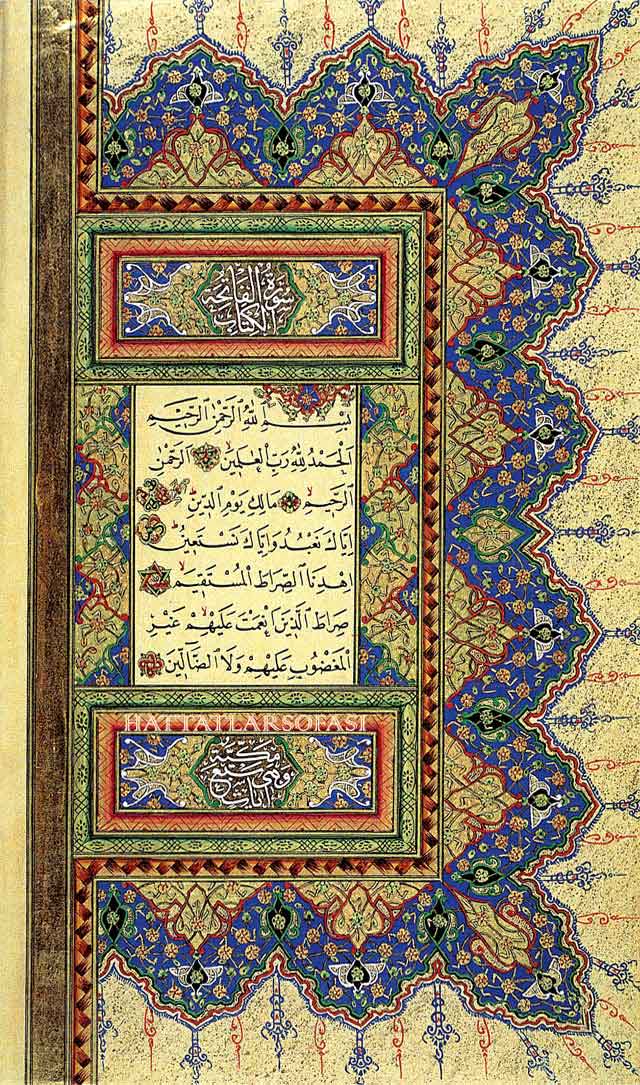 سورة الفاتحة
الكتاب
بِسْمِ اللّٰهِ الرَّحْمٰنِ الرَّحِيمِ
اَلْحَمْدُ لِلّٰهِ رَبِّ الْعٰلَمِينَ اَلرَّحْمٰنِ
الرَّحِيمِ مَالِكِ يَوْمِ الدِّينِ
اِيَّاكَ نَعْبُدُ وَاِيَّاكَ نَسْتَعِينُ
اِهْدِنَا الصِّرَاطَ الْمُسْتَقِيمَ
صِرَاطَ الَّذِينَ اَنْعَمْتَ عَلَيْهِمْ غَيْرِ
الْمَغْضُوبِ عَلَيْهِمْ وَلَا الضَّالِّينَ
HATTATLARSOFASI
مكية
وهي سبع
آيات